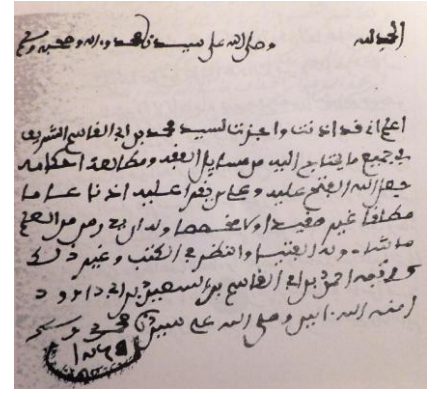 الحمد لله وصلى الله على سيدنا محمد وءاله وصحبه وسلم
اعلم أني قد اذنت واجزت للسيد محمد بن ابي القاسم الشريف
في جميع ما يحتاج اليه من مسايل الفقه ومطالعة احكامه
الله الفتح عليه وعلى من يقرأ عليه اذنا عاما
مطلقا غير مقيد ولا مخصص وله ان يدرس من العلم
ما شاء وله الفتيا والنظر في الكتب وغير ذلك
احمد بن ابي القاسم بن السعيد بن ابي داوود
امنه الله ءامين وصلى الله على سيدنا محمد